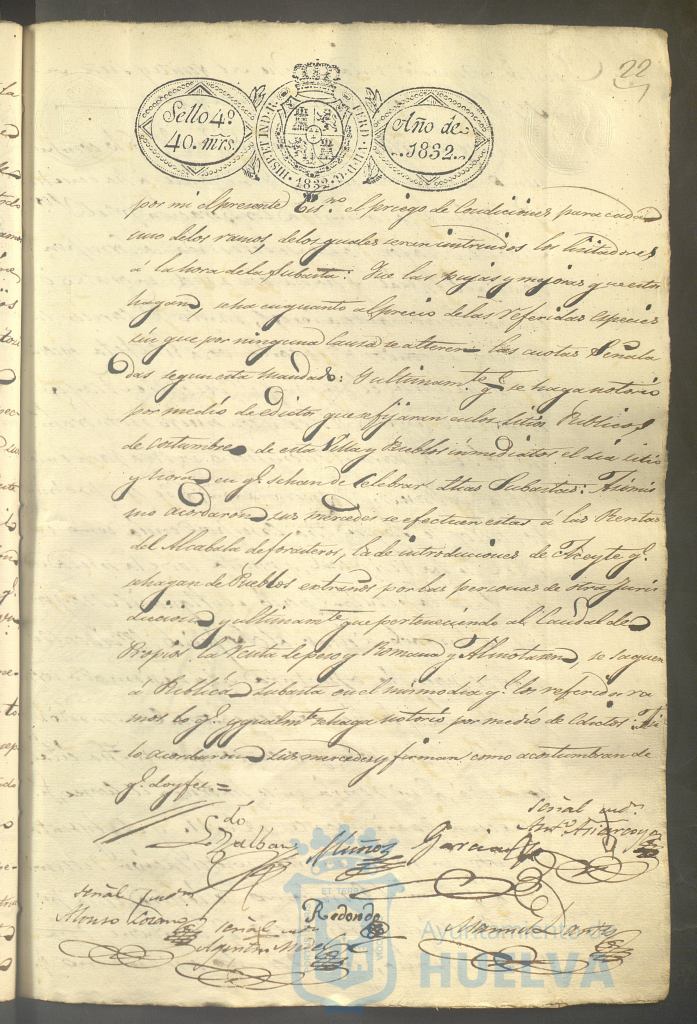 22
Sello 4º
40. mrs.
HISP. ET IND. R. FERD. VII. D. G. 1832
Año de
1832.
por mi el presente Esno. el priego de Condiciones para cada
uno delos ramos, delos quales seran intruidos los licitadores
á la hora dela Subasta: Que las pujas y mejoras que estos
hagan, seha en quanto al precio delas referidas especies
sin que por ninguna causa se alteren las cuotas Señala
das segun esta mandado: Y ultimamte. qe. se haga notorio
por medio de edictos que se fijaran en los sitios Publicos
de costumbre de esta Villa y Pueblos inmediatos el dia sitio
y hora en qe. sehan de Celebrar dhas Subastas: Asimis
mo acordaron sus mercedes se efectuen estas á las Rentas
del Alcabala de forasteros, la de introduciones de Azeyte qe.
sehagan de Pueblos extraños por las personas de otra Juris
diccion y ultimamte. que perteneciendo al Caudal de
Propios la Renta de peso y Romana y Almotasen, se saquen
á Publica Subasta en el mismo dia qe. los referidos ra
mos lo qe. ygualmte. sehaga notorio por medio de Edictos: Asi
lo acordaron Sus mercedes y firman como acostumbran de
qe. doy fee.=
Muñoz
Garcia
señal
señal
Alonso
Redondo
señal
Manuel
ET TERRAE
Ayuntamiento de
HUELVA